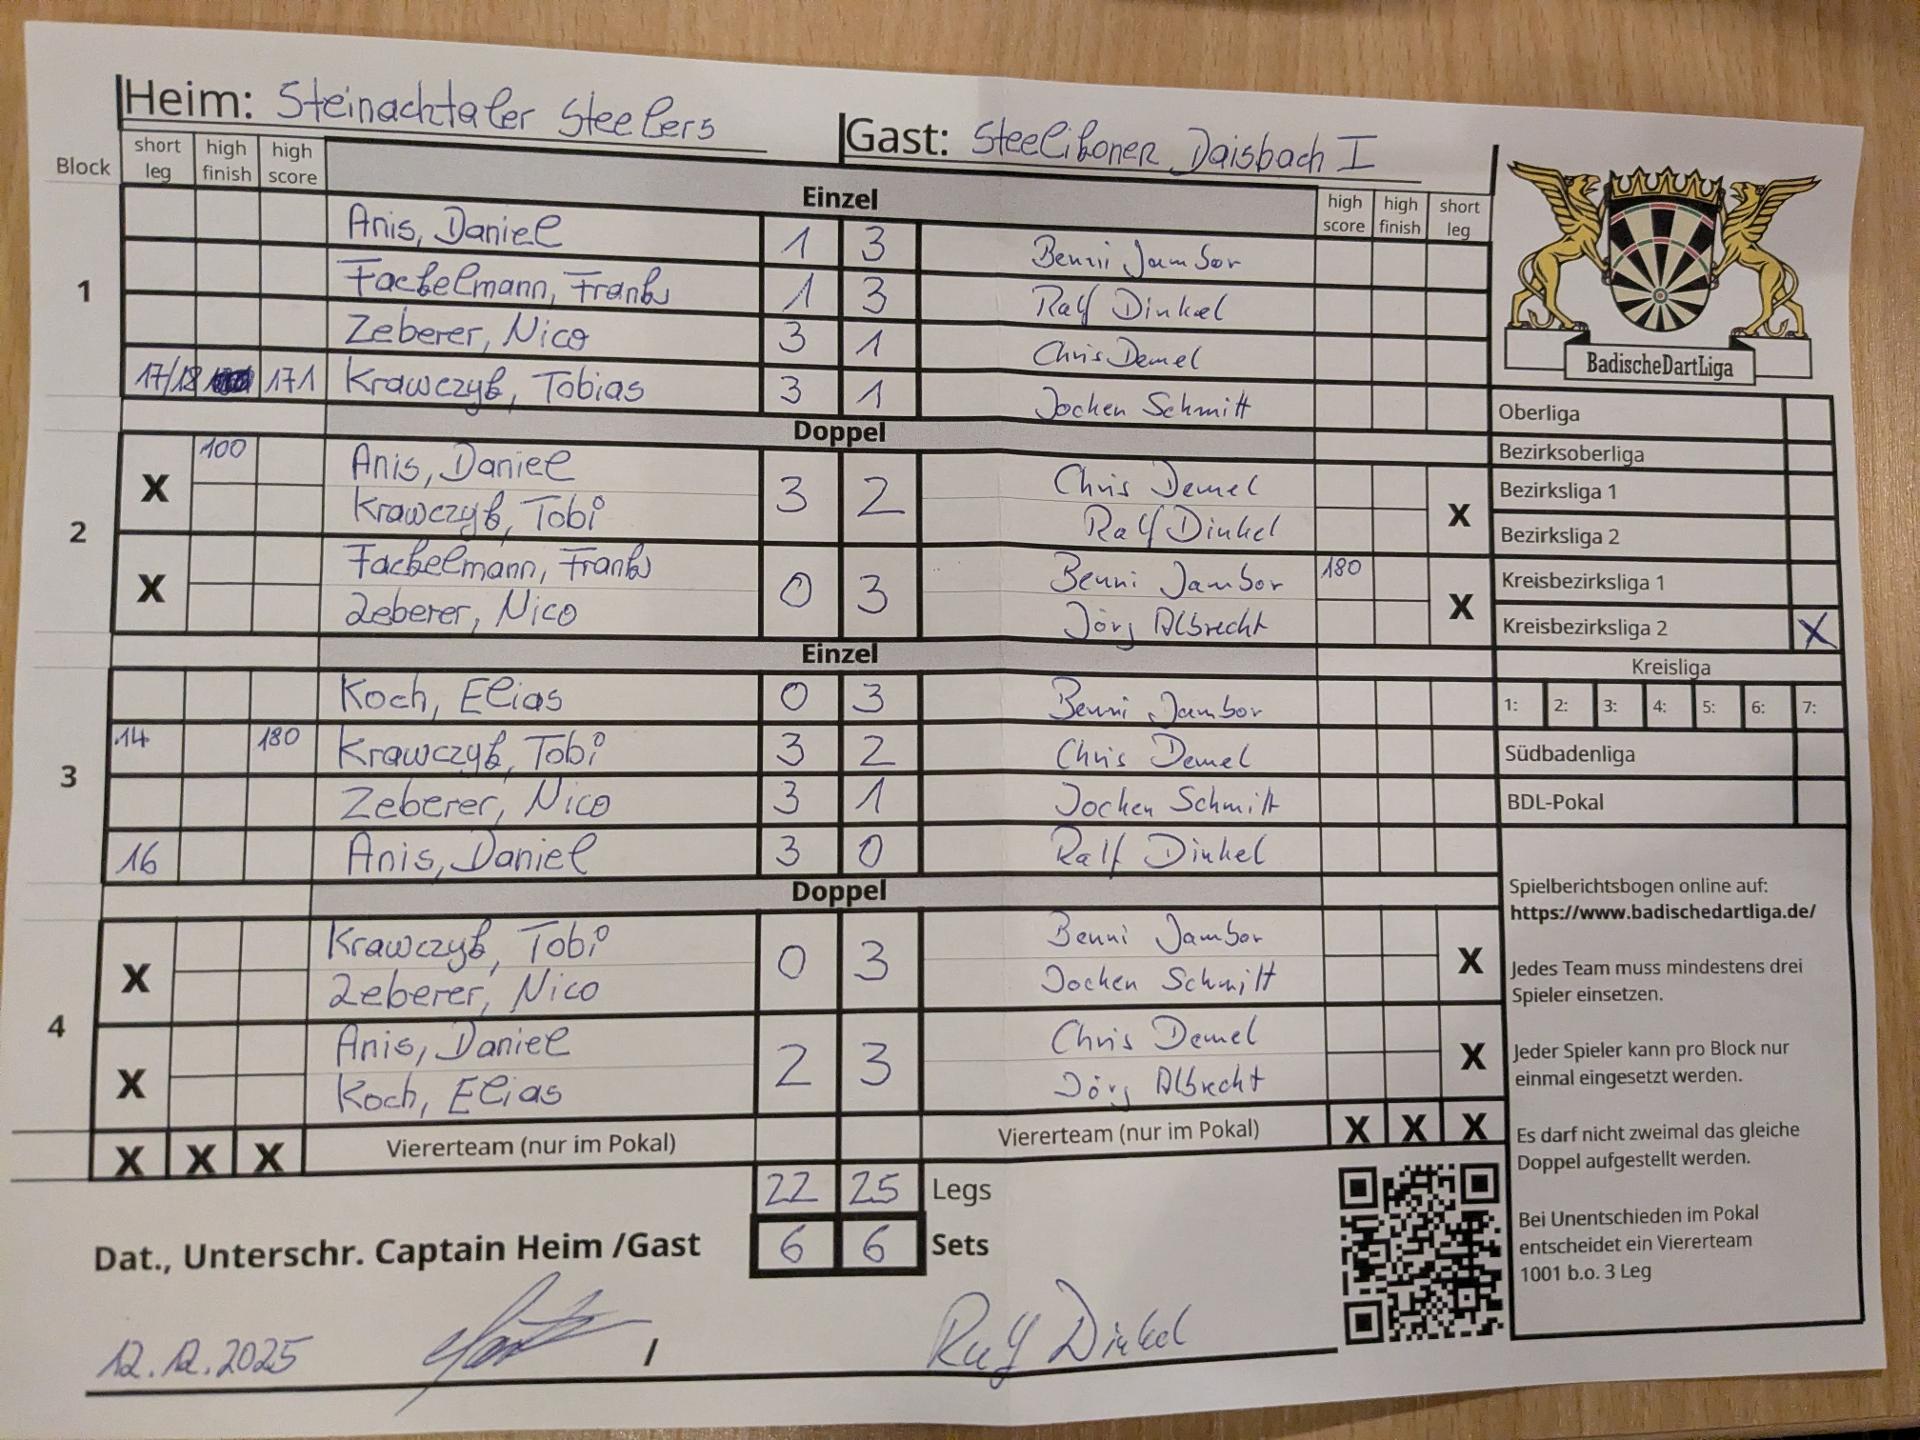 Heim: Steinachtaler Steelers Gast: Steelikoner Daisbach I
Block short leg high finish high score Einzel high score high finish short leg
1
Anis, Daniel 1 3 Benni Jambor
Fackelmann, Frank 1 3 Ralf Dinkel
Zeberer, Nico 3 1 Chris Demel
17/18 171 Krawczyk, Tobias 3 1 Jochen Schmitt
Doppel
2
X 100 Anis, Daniel 3 2 Chris Demel X
Krawczyk, Tobi Ralf Dinkel
X Fackelmann, Frank 0 3 Benni Jambor 180 X
Zeberer, Nico Jörg Albrecht
Einzel
3
Koch, Elias 0 3 Benni Jambor
14 180 Krawczyk, Tobi 3 2 Chris Demel
Zeberer, Nico 3 1 Jochen Schmitt
16 Anis, Daniel 3 0 Ralf Dinkel
Doppel
4
X Krawczyk, Tobi 0 3 Benni Jambor X
Zeberer, Nico Jochen Schmitt
X Anis, Daniel 2 3 Chris Demel X
Koch, Elias Jörg Albrecht
X X X Viererteam (nur im Pokal) Viererteam (nur im Pokal) X X X
22 25 Legs
Dat., Unterschr. Captain Heim /Gast 6 6 Sets
12.12.2025 / Ralf Dinkel
BadischeDartLiga
Oberliga
Bezirksoberliga
Bezirksliga 1
Bezirksliga 2
Kreisbezirksliga 1
Kreisbezirksliga 2 X
Kreisliga
1: 2: 3: 4: 5: 6: 7:
Südbadenliga
BDL-Pokal
Spielberichtsbogen online auf:
https://www.badischedartliga.de/
Jedes Team muss mindestens drei
Spieler einsetzen.
Jeder Spieler kann pro Block nur
einmal eingesetzt werden.
Es darf nicht zweimal das gleiche
Doppel aufgestellt werden.
Bei Unentschieden im Pokal
entscheidet ein Viererteam
1001 b.o. 3 Leg